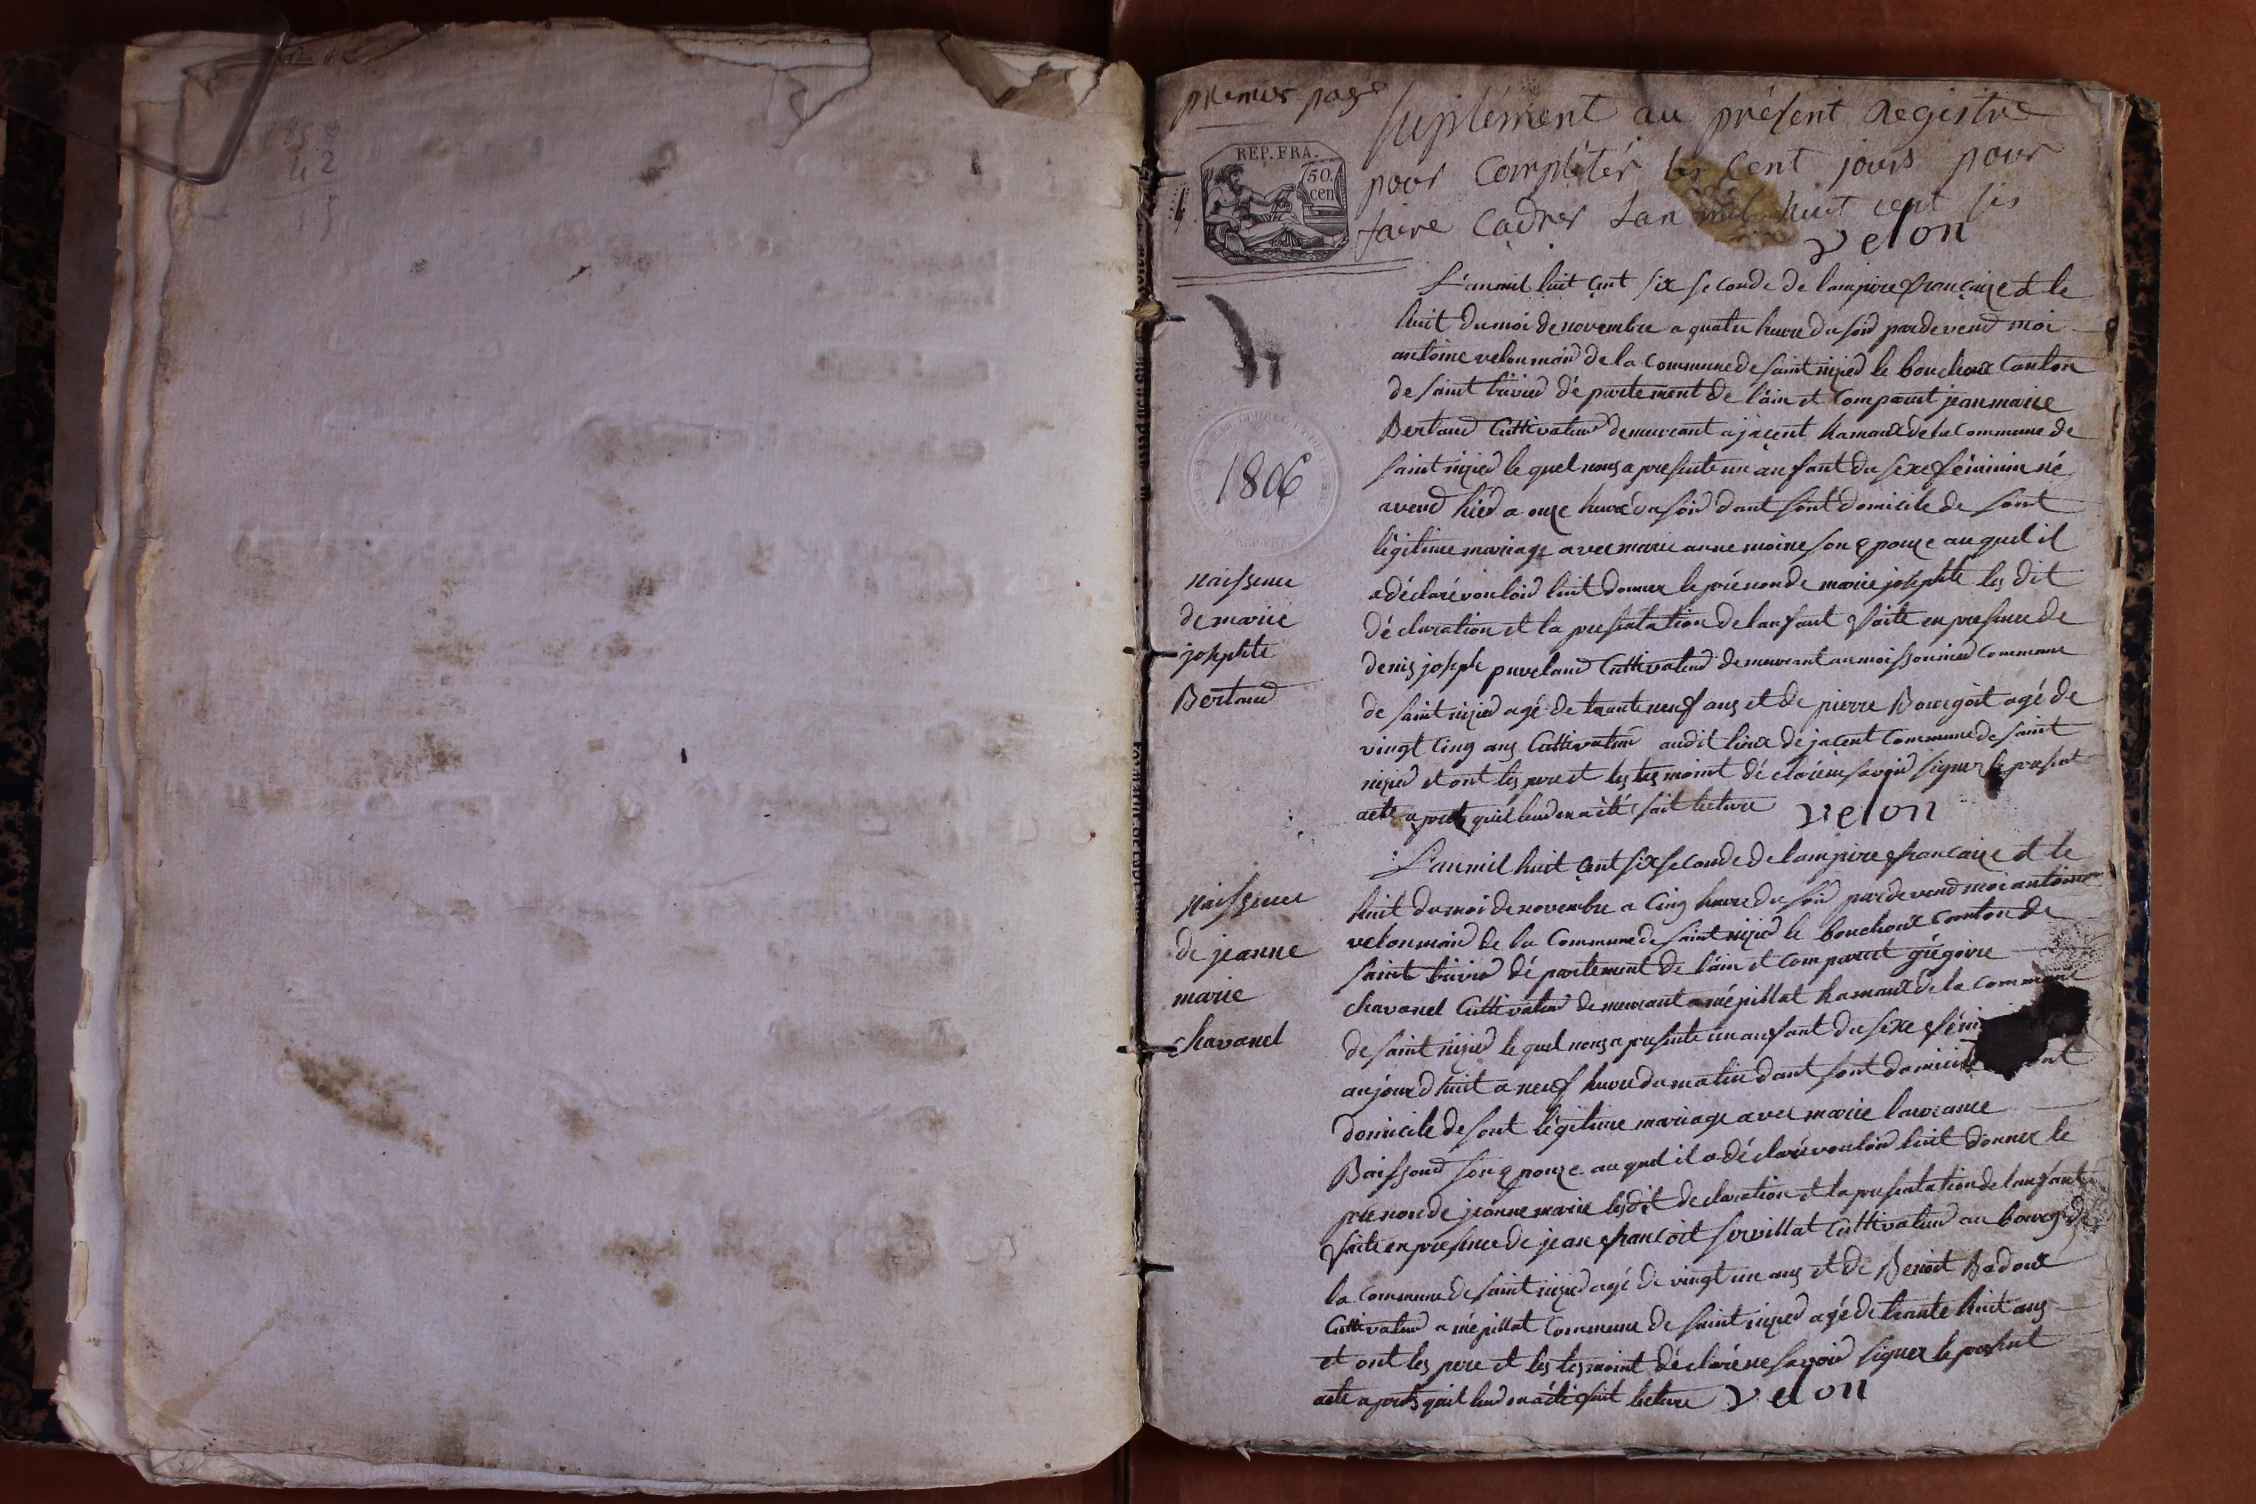 42
premier page
suplément au présent Registre
pour compléter les Cent jours pour
faire Cadrer Lan mil huit cent six
velon
REP. FRA.
50
cen
1806
L'anmil huit cent six seconde de lampire francaize et le
huit du moi de novembre a quatre heure du soir pardevend moi
antoine velon mair de la commune de saint nizied le bouchoux canton
de saint trivier département de l'ain et comparut jean marie
Bertaud Cultivateur demeurant a jacent hamaux de la commune de
saint nizied le quel nous a presente un anfant du sexe féminin né
avend hier a onze heure du soir dant sont domicile de sont
légitime mariage avec marie anne moine son epouze auquel il
a déclaré vouloir luit donner le prénon de marie josephte les dit
déclaration et la presentation de lanfant faite en presence de
denis joseph puveland Cultivateur demeurant au moissonnier commune
de saint nizied agé de trante neuf ans et de pierre Bourgoit agé de
vingt cinq ans Cultivateur audit lieux de jacent commune de saint
nizied et ont les pere et les tesmoint déclaré ne savoir signer le present
acte a prets quil leur en a été fait lecture velon
naissence
de marie
josephte
Bertaud
L'anmil huit cent six seconde de lampire francaize et le
huit du moi de novembre a cinq heure du soir pardevend moi antoine
velon mair de la commune de saint nizied le bouchoux conton de
saint trivier département de l'ain et comparut grégoire
chavanel Cultivateur demeurant a mépillat hamaux de la commune
de saint nizied le quel nous a presente un anfant du sexe fémi
aujourd huit a neuf heure du matin dant sont domicile sont
domicile de sont légitime mariage avec marie laurance
Baissoud son epouze auquel il a déclaré vouloir luit donner le
prenon de jeanne marie lesdit declaration et la presentation de lanfant
faite en presence de jean francoit servillat Cultivateur au bourg de
la commune de saint nizied agé de vingt un ans et de Benoit Badoux
Cultivateur a mépillat commune de saint nizied agé de trante huit ans
et ont les pere et les tesmoint déclaré ne savoir signer le present
acte a prets quil leur en a été fait lecture velon
naissence
de jeanne
marie
chavanel